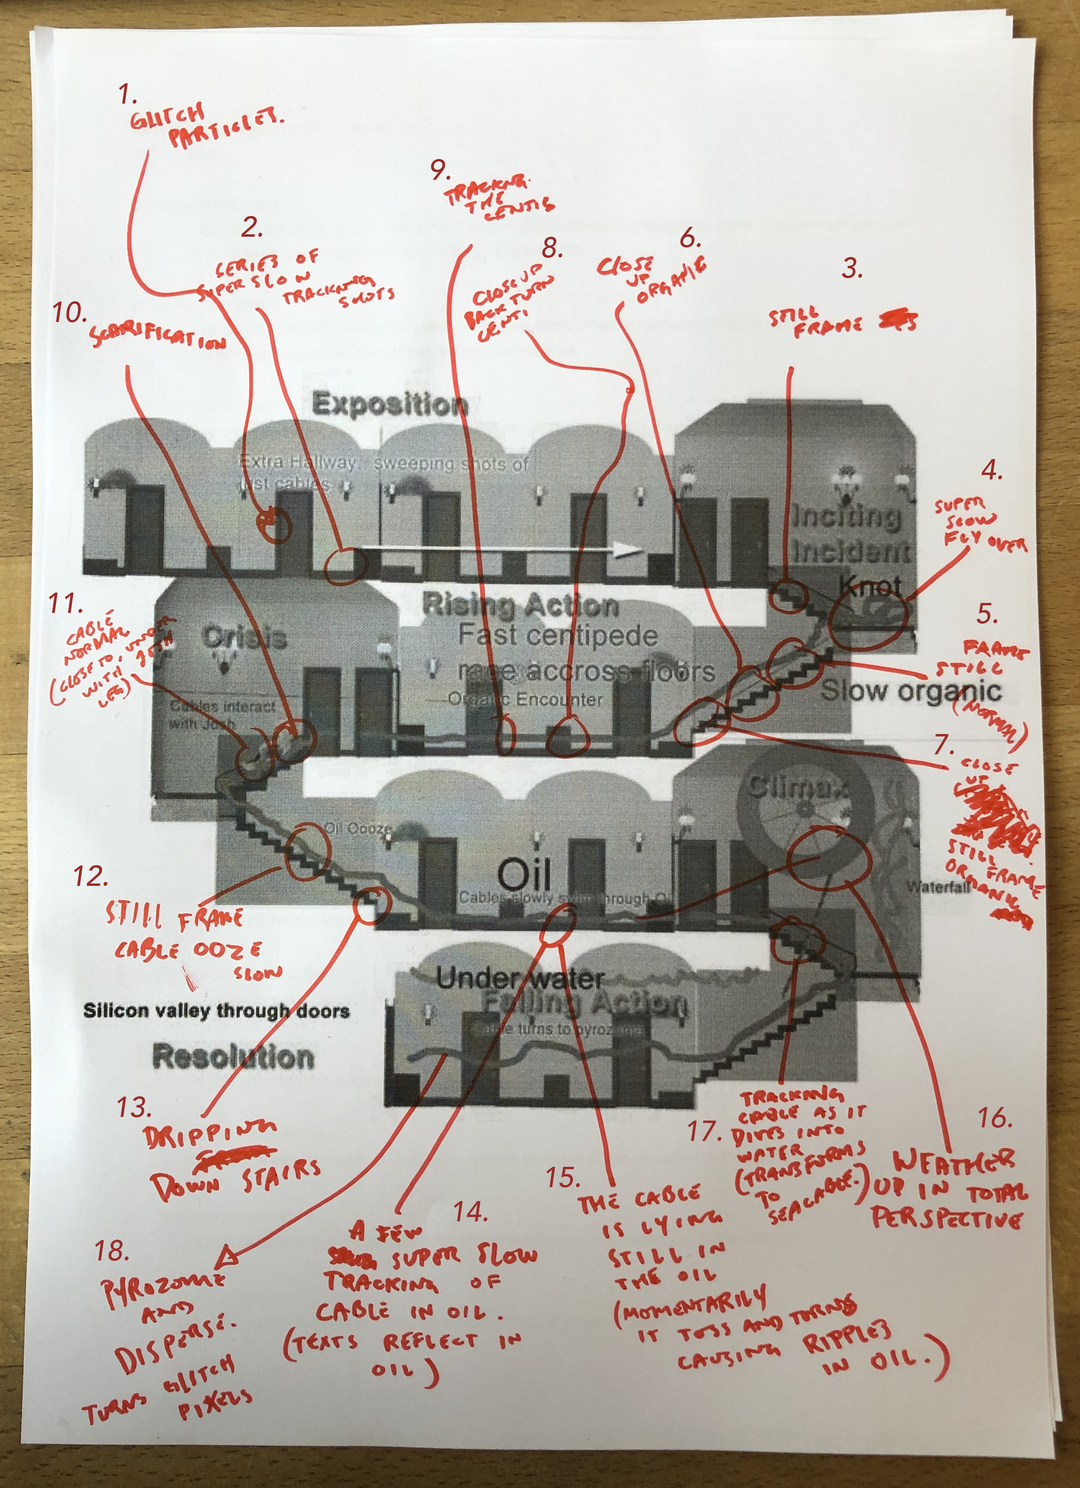 1.
GLITCH
PARTICLES.
2.
SERIES OF
SUPER SLOW
TRACKING
SHOTS
9.
TRACKING
THE
CENTIS
8.
CLOSE UP
BACK TURN
CENTI
6.
CLOSE
UP
ORGANIC
3.
STILL
FRAME
10.
SCARIFICATION
Exposition
Extra Hallway: sweeping shots of
just cables
4.
SUPER
SLOW
FLY OVER
Inciting
Incident
Knot
11.
CABLE
NORMAL
(CLOSE TO, UNDER
WITH JOSH
LEG)
Crisis
Cables interact
with Josh
Rising Action
Fast centipede
race accross floors
Organic Encounter
5.
FRAME
STILL
(NORMAL)
Slow organic
7.
CLOSE
UP
STILL FRAME
ORGANIC
Climax
Waterfall
Oil Oooze
Oil
Cables slowly swim through Oil
12.
STILL FRAME
CABLE OOZE
SLOW
Under water
Falling Action
Cable turns to pyrozome
Silicon valley through doors
Resolution
13.
DRIPPING
DOWN STAIRS
17.
TRACKING
CABLE AS IT
DIVES INTO
WATER
(TRANSFORMS
TO
SEACABLE.)
16.
WEATHER
UP IN TOTAL
PERSPECTIVE
18.
PYROZOME
AND
DISPERSE.
TURNS GLITCH
PIXELS
14.
A FEW
SUPER SLOW
TRACKING OF
CABLE IN OIL.
(TEXTS REFLECT IN
OIL)
15.
THE CABLE
IS LYING
STILL IN
THE OIL
(MOMENTARILY
IT TOSS AND TURNS
CAUSING RIPPLES
IN OIL.)